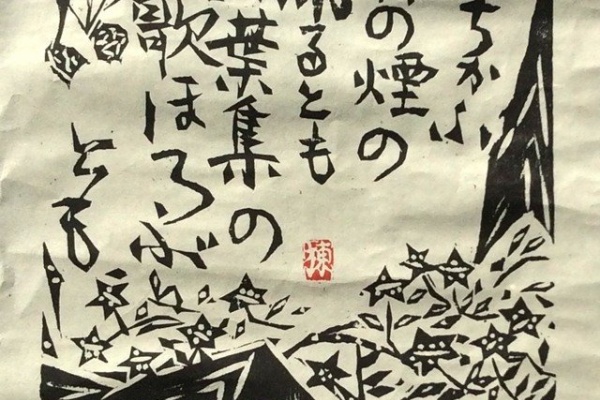 ちかふ
の煙の
るとも
葉集の
歌ほろぶ
とも
棟